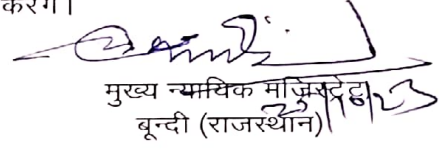 करेंगे।
मुख्य न्यायिक मजिस्ट्रेट
बून्दी (राजस्थान)